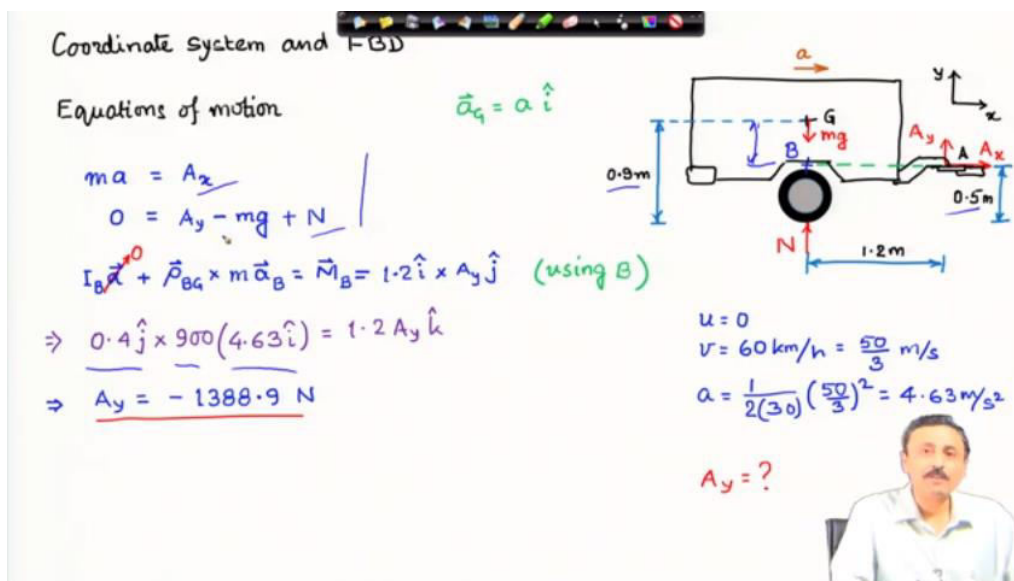 Coordinate system and FBD
Equations of motion
a⃗_G = a î
ma = A_x
0 = A_y - mg + N
I_B α⃗ 0 + ρ⃗_BG × m a⃗_B = M⃗_B = 1.2 î × A_y ĵ (using B)
⇒ 0.4 ĵ × 900 (4.63 î) = 1.2 A_y k̂
⇒ A_y = - 1388.9 N
a
y
x
G
mg
B
A_y
A
A_x
0.9m
0.5m
N
1.2m
u = 0
v = 60 km/h = 50/3 m/s
a = 1/2(30) (50/3)² = 4.63 m/s²
A_y = ?